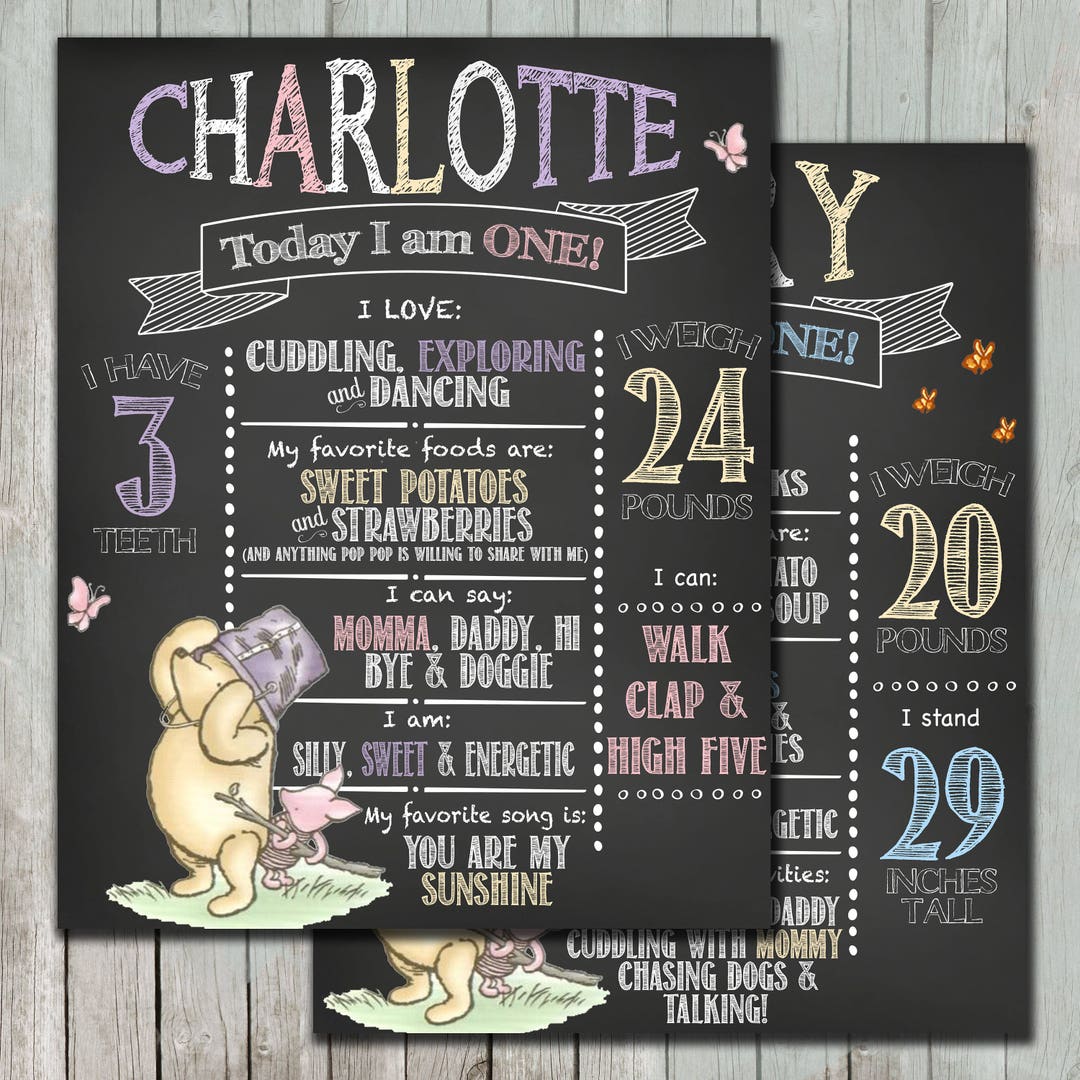 CHARLOTTE
Today I am ONE!
I LOVE:
CUDDLING, EXPLORING
and DANCING
My favorite foods are:
SWEET POTATOES
and STRAWBERRIES
(AND ANYTHING POP POP IS WILLING TO SHARE WITH ME)
I can say:
MOMMA, DADDY, HI
BYE & DOGGIE
I am:
SILLY, SWEET & ENERGETIC
My favorite song is:
YOU ARE MY
SUNSHINE
I HAVE
3
TEETH
I WEIGH
24
POUNDS
I can:
WALK
CLAP &
HIGH FIVE
Y
NE!
KS
re:
ATO
OUP
&
ES
GETIC
ities:
DADDY
CUDDLING WITH MOMMY
CHASING DOGS &
TALKING!
I WEIGH
20
POUNDS
I stand
29
INCHES
TALL